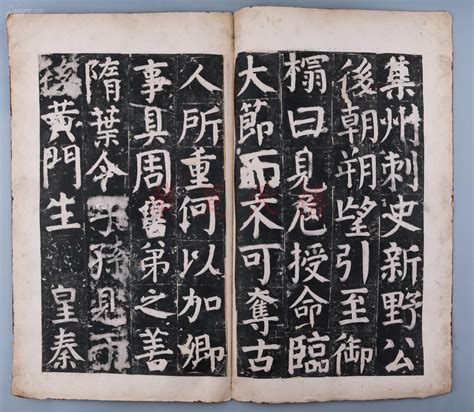 kongfz.cn
集州刺史新野公
後朝朔望引至御
榻曰見危授命臨
大節而不可奪古
人所重何以加卿
事具周書弟之善
隋葉令子孫見
後黃門生 皇秦